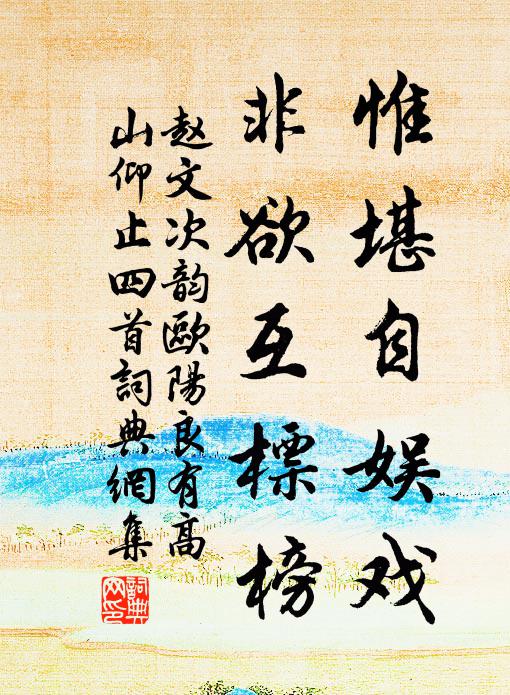 惟堪自娱戏
非欲互標榜
赵文次韵歐陽良有高
山仰止四首詞典網集
詞典网印